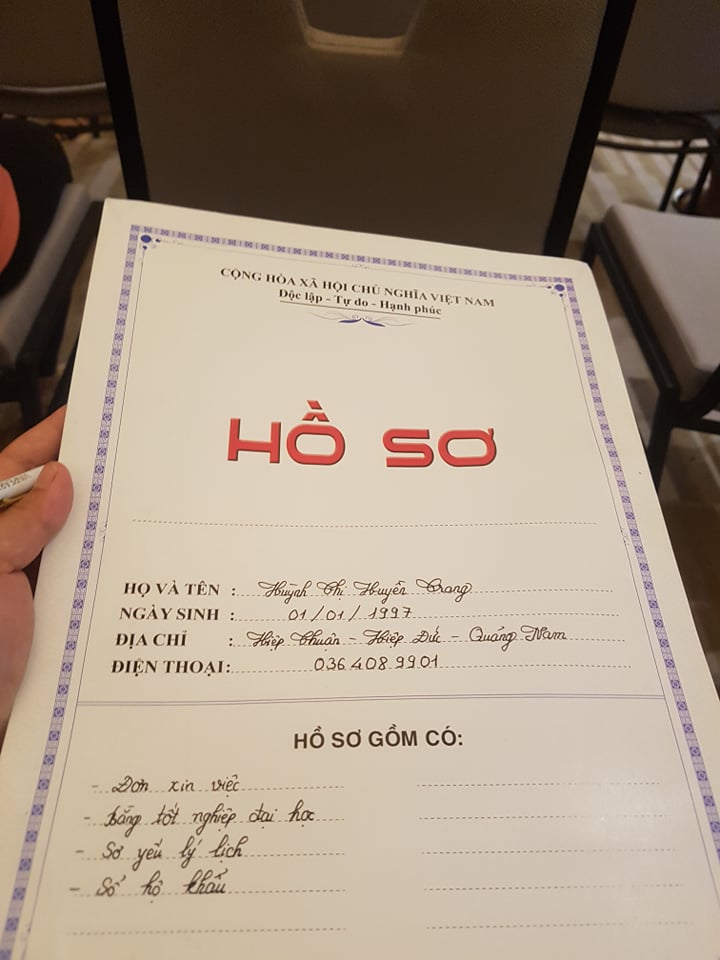 CỘNG HÒA XÃ HỘI CHỦ NGHĨA VIỆT NAM
Độc lập - Tự do - Hạnh phúc
HỒ SƠ
HỌ VÀ TÊN : Huỳnh Thị Huyền Trang
NGÀY SINH : 01/01/1997
ĐỊA CHỈ : Hiệp Thuận - Hiệp Đức - Quảng Nam
ĐIỆN THOẠI: 036 408 9901
HỒ SƠ GỒM CÓ:
- Đơn xin việc
- Bằng tốt nghiệp đại học
- Sơ yếu lý lịch
- Sổ hộ khẩu